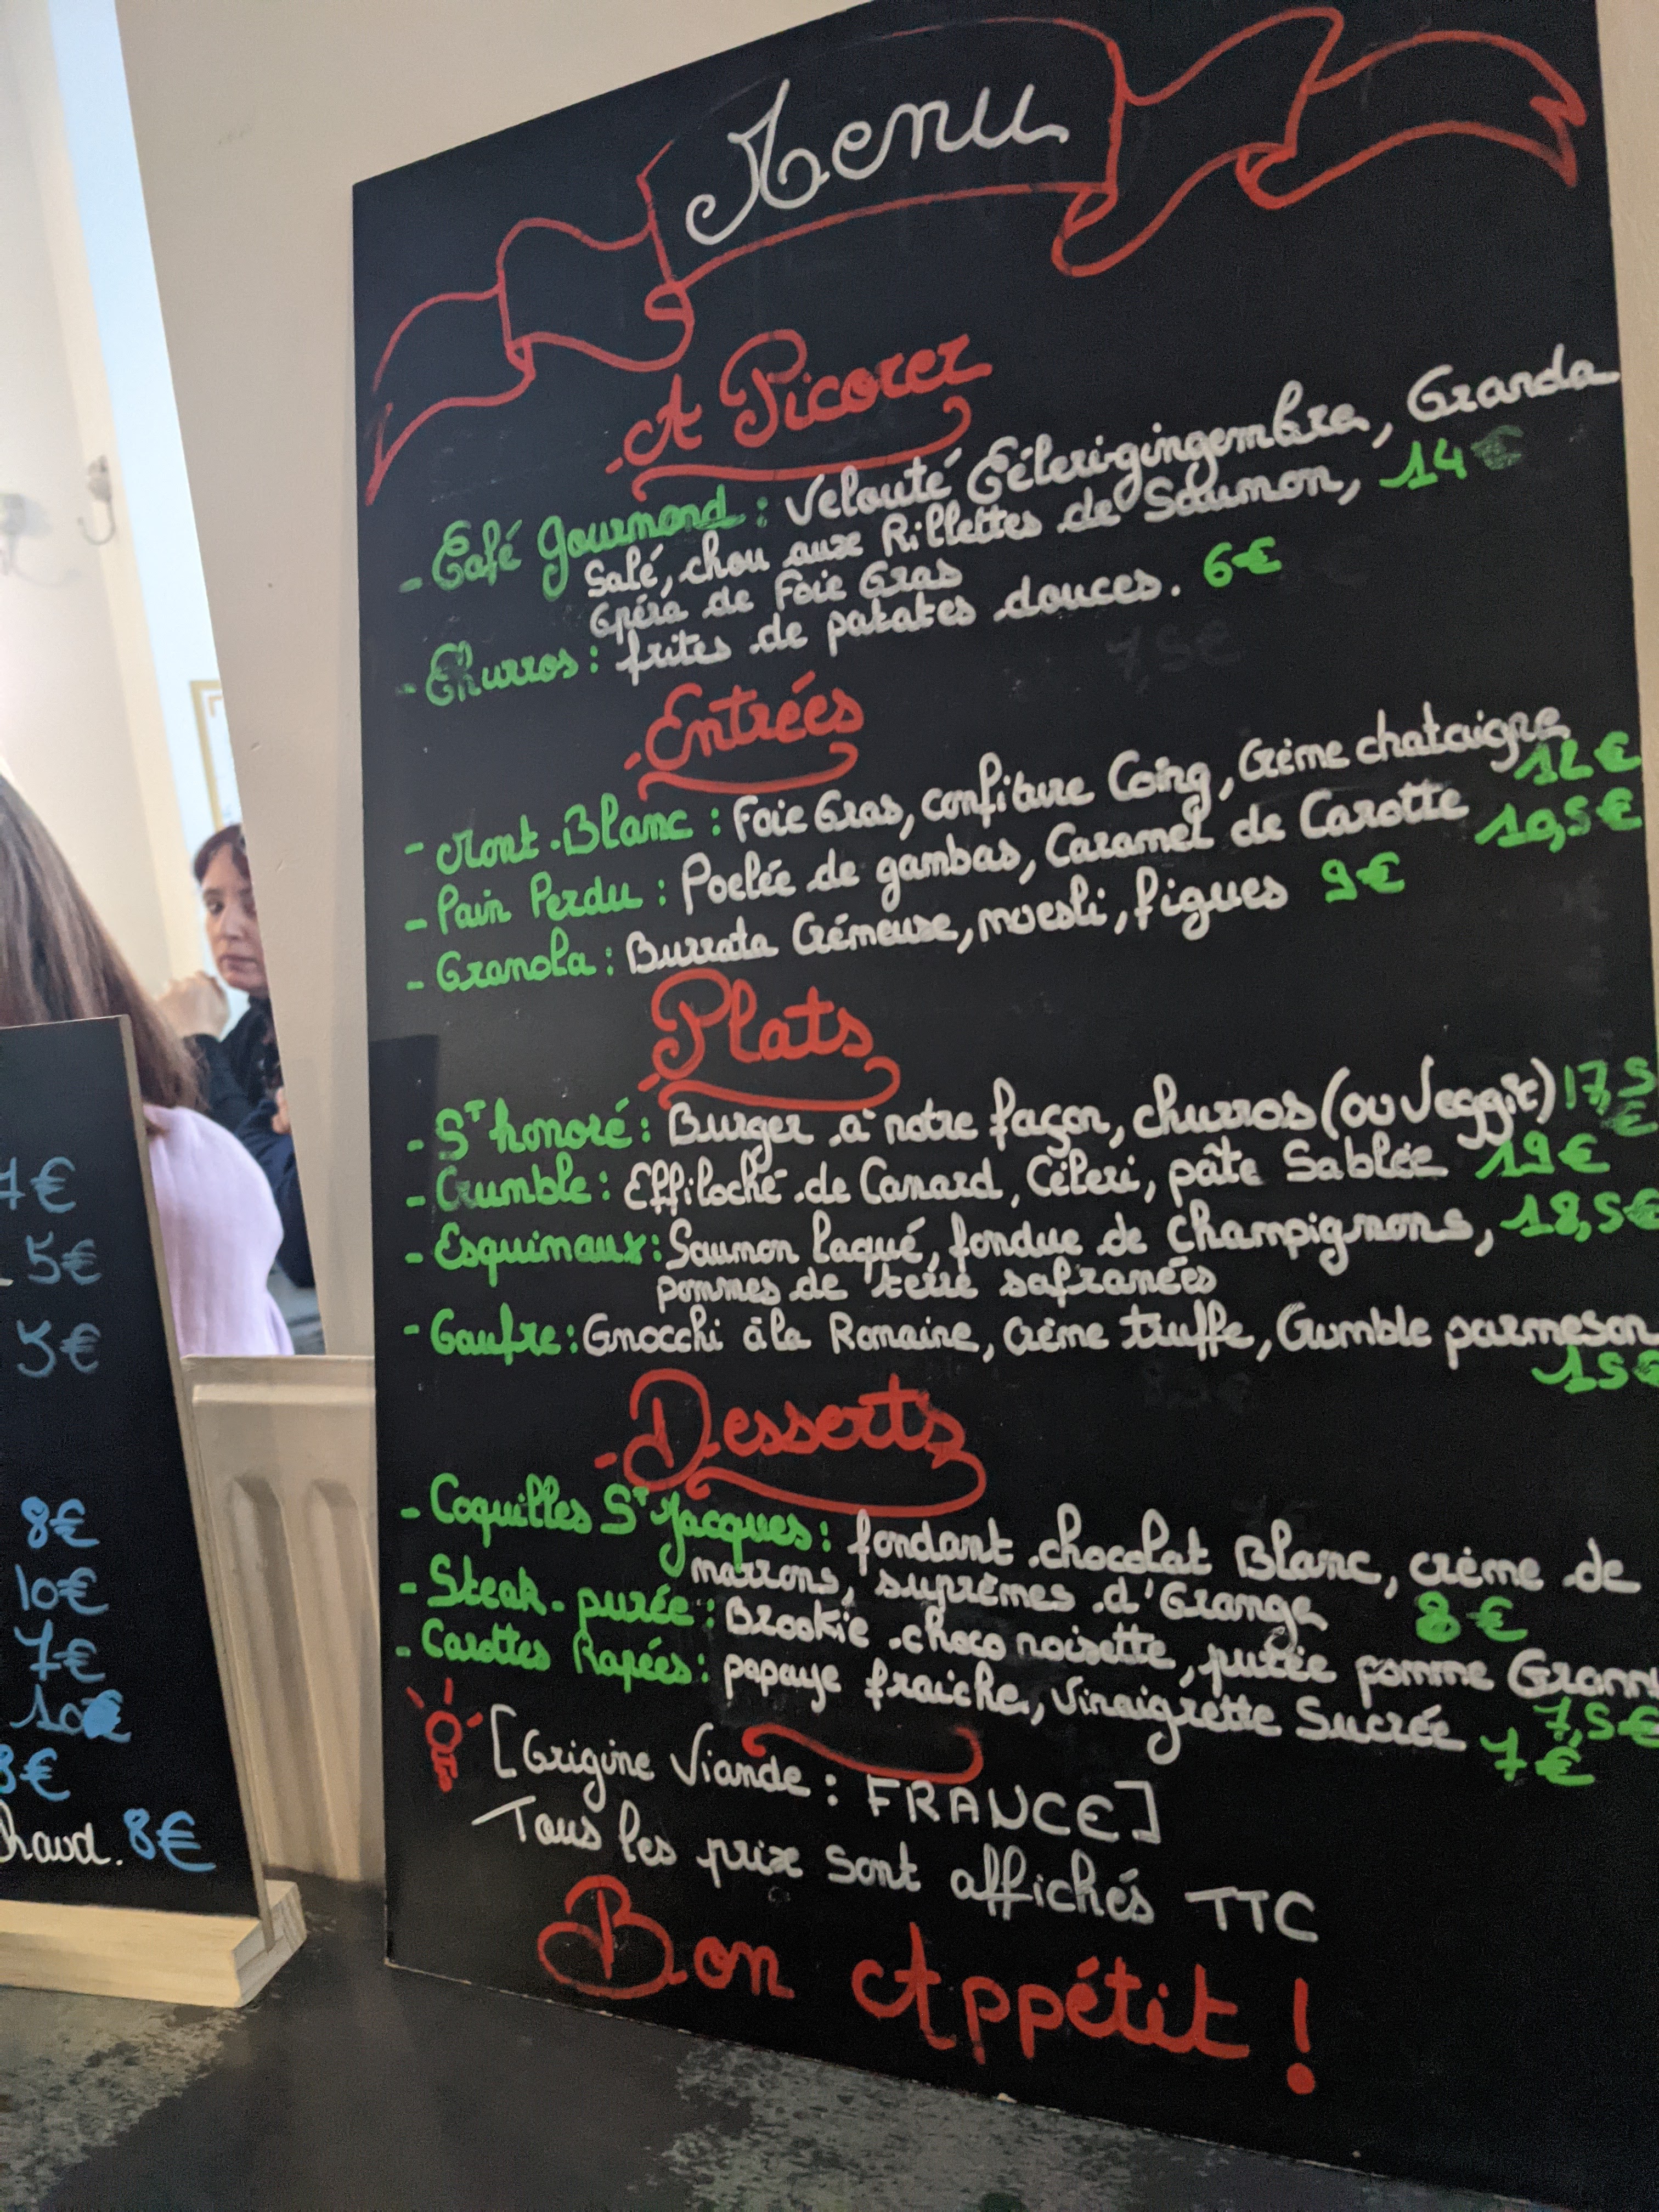 Menu
A Picorer
- Café gourmand : Velouté Céleri-gingembre, Granola
Salé, chou aux Rillettes de Saumon, 14€
Opéra de Foie Gras
- Churros : frites de patates douces. 6€
7,5€
Entrées
- Mont-Blanc : Foie Gras, confiture Coing, Crème chataigne
12€
- Pain Perdu : Poelée de gambas, Caramel de Carotte 10,5€
- Granola : Burrata Crémeuse, muesli, figues 9€
Plats
- ST honoré : Burger à notre façon, churros (ou Veggie) 17,5
€
- Crumble : Effiloché de Canard, Céleri, pâte Sablée 19€
- Esquimaux : Saumon laqué, fondue de champignons, 18,5€
pommes de terre safranées
- Gaufre : Gnocchi à la Romaine, crème truffe, Crumble parmesan
15€
Desserts
- Coquilles ST Jacques : fondant chocolat Blanc, crème de
marrons, suprêmes d'Orange 8€
- Steak-purée : Brookie choco noisette, purée pomme Granny
7,5€
- Carottes Rapées : papaye fraiche, Vinaigrette Sucrée 7€
[Origine Viande : FRANCE]
Tous les prix sont affichés TTC
Bon Appétit !
7€
5€
5€
8€
10€
7€
10€
8€
Chaud. 8€